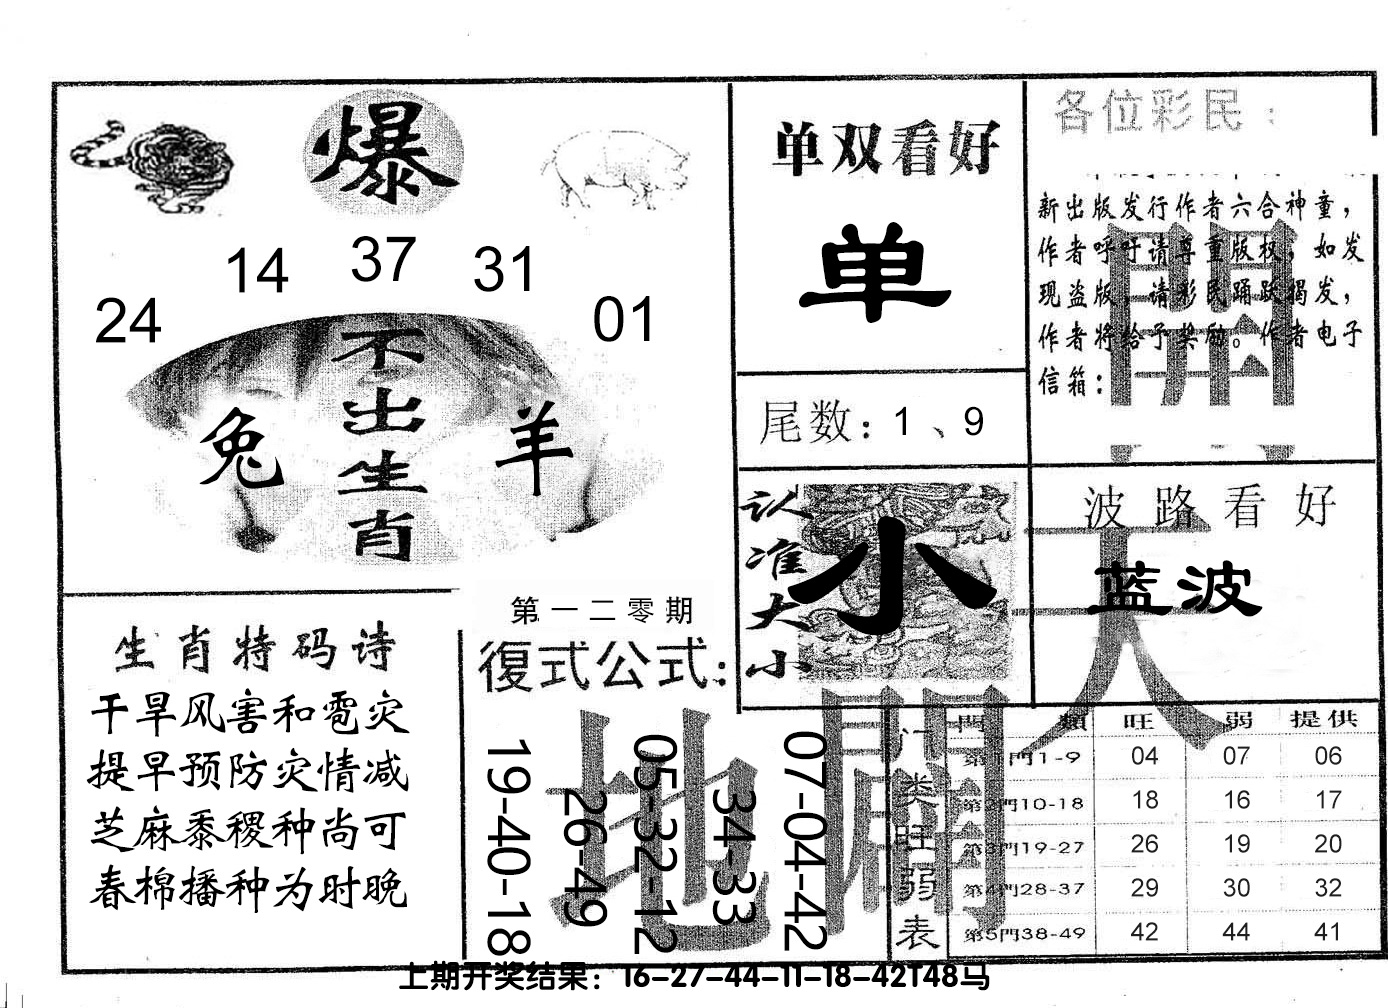 爆
24 14 37 31 01
不出生肖
兔 羊
单双看好
单
尾数：1、9
各位彩民：
新出版发行作者六合神童，
作者呼吁请尊重版权，如发
现盗版，请彩民踊跃揭发，
作者将给予奖励。作者电子
信箱：
開
认准大小
小
波路看好
蓝波
天
生肖特码诗
干旱风害和雹灾
提早预防灾情减
芝麻黍稷种尚可
春棉播种为时晚
第一二零期
復式公式：
19-40-18
26-49
05-32-12
34-33
07-04-42
地
闢
门类旺弱表
門類 旺 弱 提供
第1門1-9 04 07 06
第2門10-18 18 16 17
第3門19-27 26 19 20
第4門28-37 29 30 32
第5門38-49 42 44 41
上期开奖结果：16-27-44-11-18-42T48马